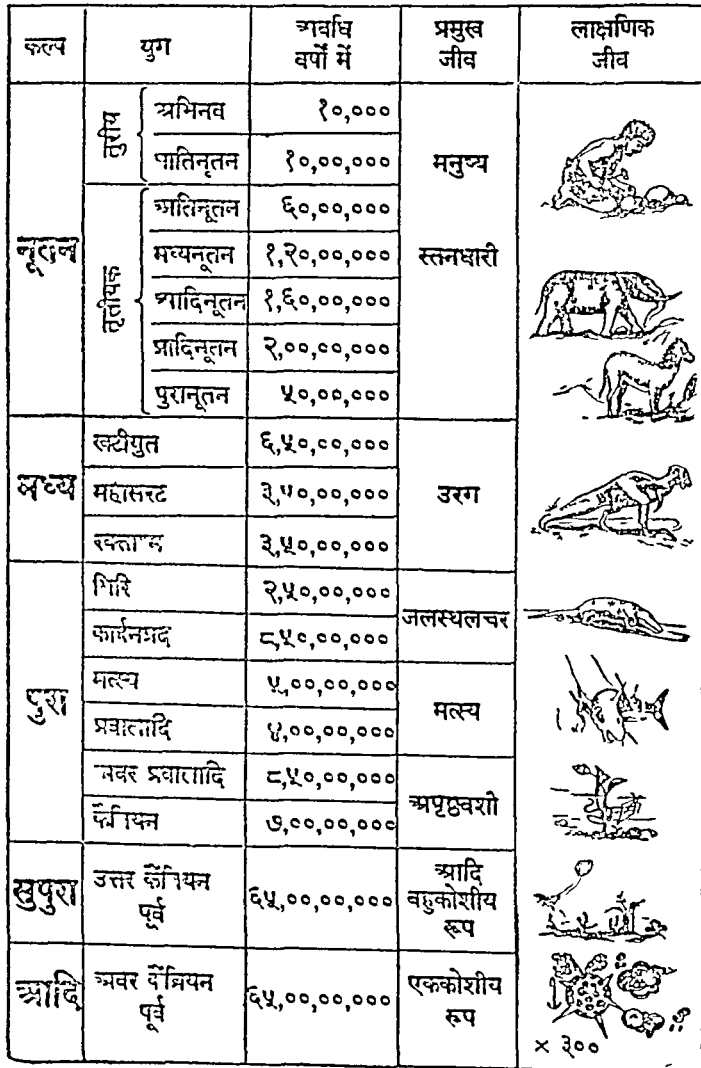 कल्प युग अवधि वर्षों में प्रमुख जीव लाक्षणिक जीव
नूतन तुरीय अभिनव १०,००० मनुष्य
पातिनूतन १०,००,०००
तृतीयक अतिनूतन ६०,००,००० स्तनधारी
मध्यनूतन १,२०,००,०००
आदिनूतन १,६०,००,०००
प्रादिनूतन २,००,००,०००
पुरानूतन ५०,००,०००
मध्य खटीयुत ६,५०,००,००० उरग
महासरट ३,५०,००,०००
रक्ताश्म ३,५०,००,०००
पुरा गिरि २,५०,००,००० जलस्थलचर
कार्बनप्रद ८,५०,००,०००
मत्स्य ५,००,००,००० मत्स्य
प्रवालादि ४,००,००,०००
अवर प्रवालादि ८,५०,००,००० अपृष्ठवशी
कैंब्रियन ७,००,००,०००
सुपुरा उत्तर कैंब्रियन पूर्व ६५,००,००,००० आदि वहुकोशीय रूप
आदि अवर कैंब्रियन पूर्व ६५,००,००,००० एककोशीय रूप
× ३००